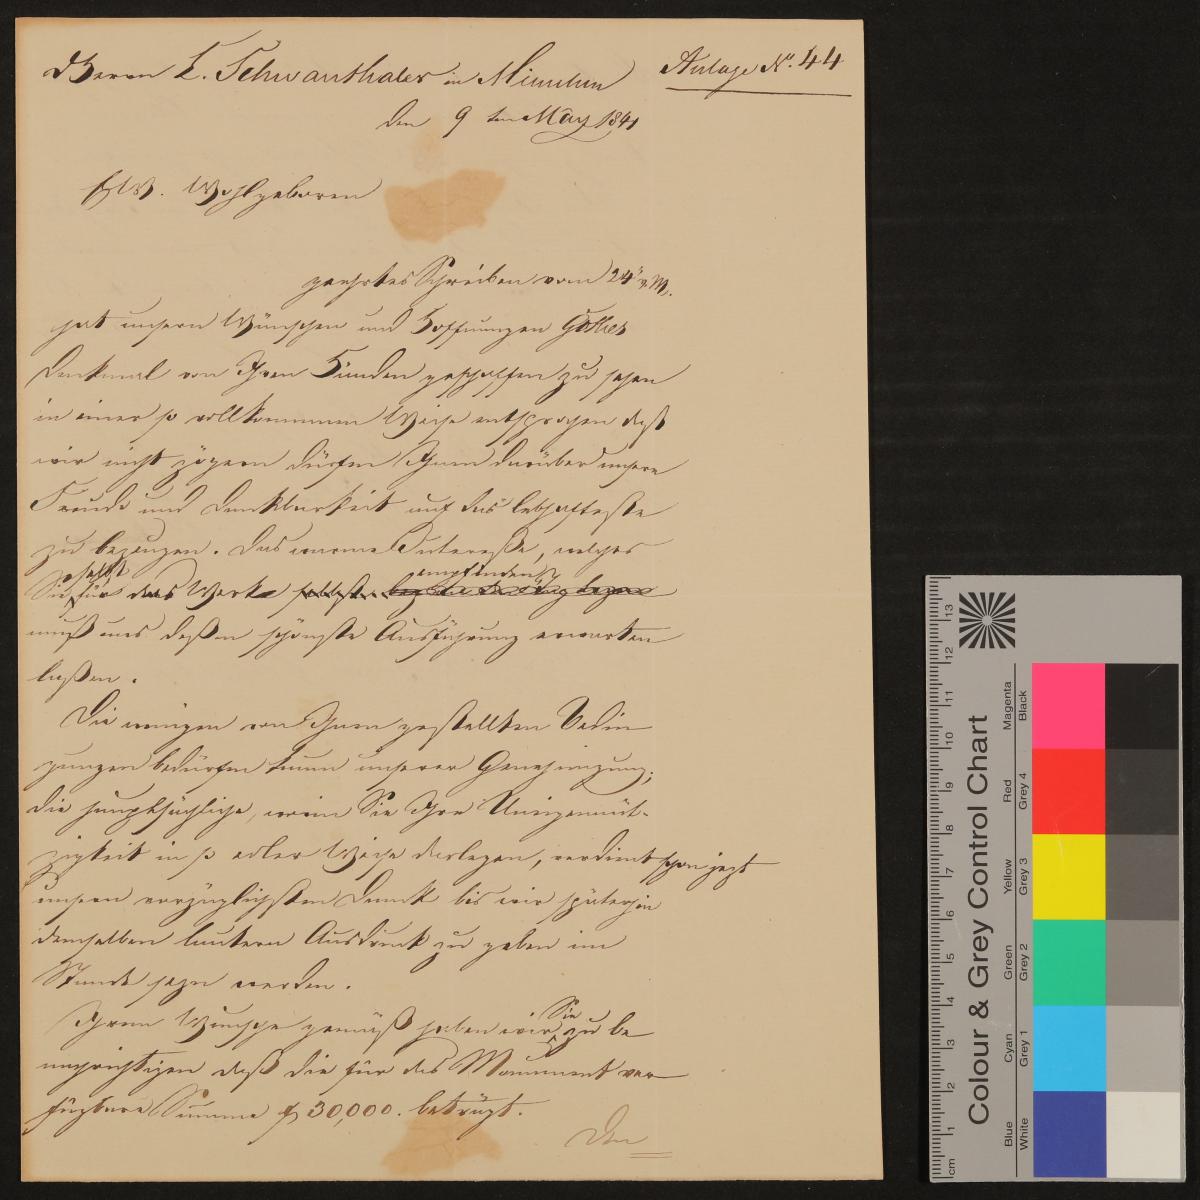 Herrn L. Schwanthaler in München
Anlage N. 44
den 9 ten May 1841
Ew. Wohlgeboren
geehrtes Schreiben vom 24 v. M.
hat unsern Wünschen und Hoffnungen Göthes
Denkmal von Ihren Händen geschaffen zu sehen
in einer so vollkommenen Weise entsprochen daß
wir nicht zögern dürfen Ihnen darüber unsere
Freude und Dankbarkeit auf das lebhafteste
zu bezeugen. Das warme Interesse, welches
selbst empfinden
Sie für das Werk selbst
muß uns deßen schönste Ausführung erwarten
laßen.
Die wenigen von Ihnen gestellten Bedin
gungen bedürfen kaum unserer Genehmigung;
die hauptsächliche, worin Sie Ihre Uneigennüt-
zigkeit in so edler Weise darlegen, verdient schon jezt
unsern vorzüglichsten Dank bis wir späterhin
demselben lautern Ausdruck zu geben im
Stande seyn werden.
Ihrem Wunsche gemäß haben wir Sie zu be
nachrichtigen daß die für das Monument ver
fügbare Summe f 30,000. beträgt.
Den